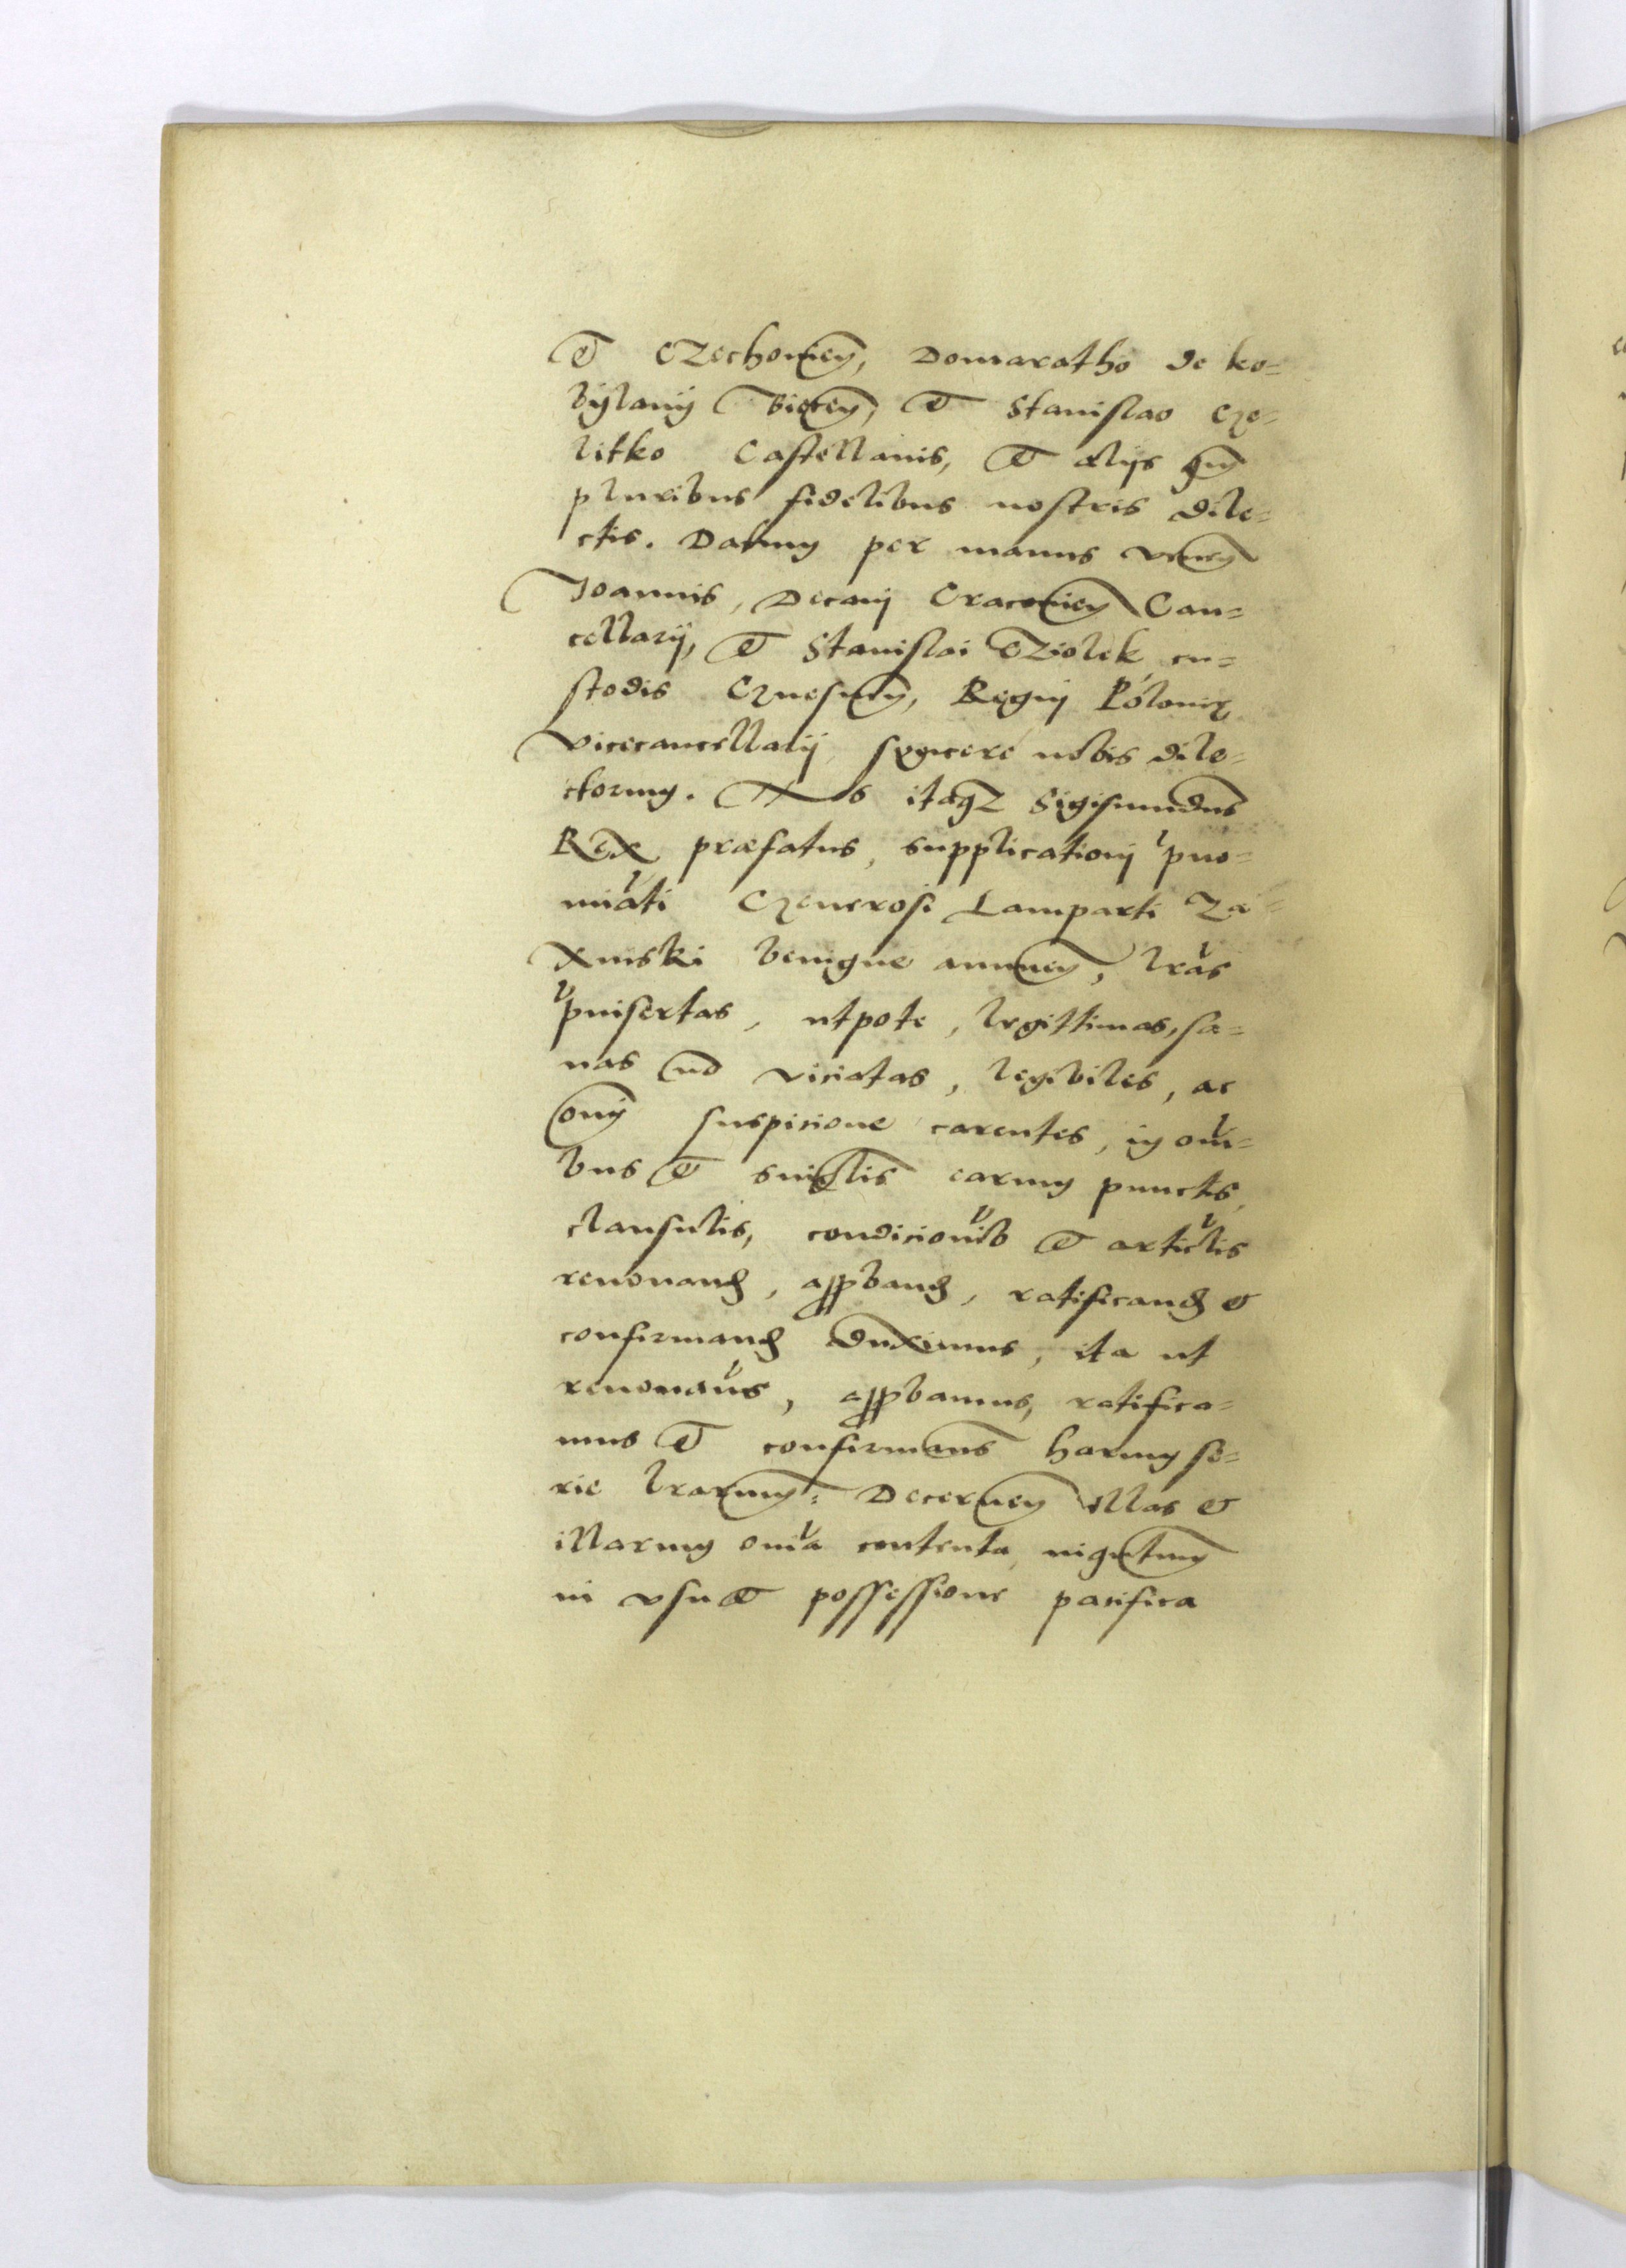 et Czechowien̄, Domaratho de Ko-
bylany Biecen̄, et Stanislao Ge-
litko Castellanis, et alijs q̄m
pluribus fidelibus nostris dile-
ctis. Datum per manus Vener̄
Joannis, Decani Cracovien̄ Can-
cellarij, et Stanislai Cziolek, cu-
stodis Gnesnen̄, Regni Poloniæ
Vicecancellarij, syncere nobis dile-
ctorum. Nos itaq3 Sigismundus
Rex præfatus, supplicationi p̄no-
mi̅ati Generosi Lamparti Za-
xinski benigne annuen̄, lr̄as
p̄insertas, utpote, legittimas, sa-
nas no̅ viciatas, legibiles, ac
om̄i suspicione carentes, in om̄i-
bus et sing̅lis earum punctis,
clausulis, condicio̅ib et artic̅lis
renouand, approband, ratificand et
confirmand duximus, ita ut
renoua̅us, approbamus, ratifica-
mus et confirmam̄s harum se-
rie lr̄arum: Decernen̄ illas et
illarum om̄ia contenta
in vsu et possessione pacifica